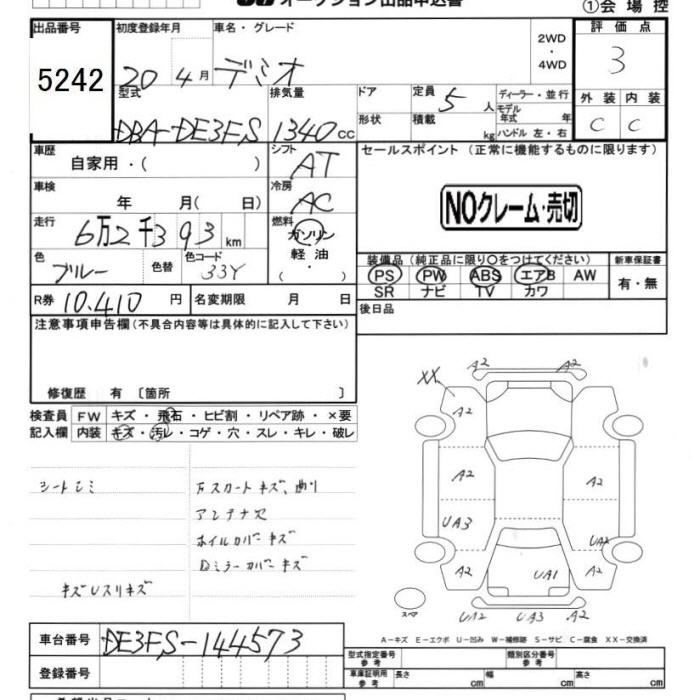 オークション出品申込書
①会場控
出品番号 初度登録年月 車名・グレード 2WD・4WD 評価点
5242 20 4月 デミオ 3
型式 排気量 ドア 定員 5人 ディーラー・並行 外装 内装
DBA-DE3FS 1340cc 形状 積載 kg モデル年式 年 ハンドル 左・右 C C
車歴 自家用・( ) シフト AT セールスポイント (正常に機能するものに限ります)
車検 年 月( 日) 冷房 AC
NOクレーム・売切
走行 6万2千393km 燃料 ガソリン 軽油 ・( )
色 ブルー 色替 色コード 33Y
装備品 (純正品に限り○をつけてください) 新車保証書
PS PW ABS エアB AW 有・無
SR ナビ TV カワ
R券 10,410円 名変期限 月 日 後日品
注意事項申告欄(不具合内容等は具体的に記入して下さい)
修復歴 有 〔箇所 〕
検査員 FW キズ・飛石・ヒビ割・リペア跡・×要
記入欄 内装 キズ・汚レ・コゲ・穴・スレ・キレ・破レ
シートシミ
キズUスリキズ
スカートキズ、曲り
アンテナ欠
ホイルカバーキズ
Dミラーカバーキズ
A2 A2
XX A2
A2 A2
UA3 UA2
A2 UA1 A2
スペア UA2 UA3 A2
A-キズ E-エクボ U-凹み W-補修跡 S-サビ C-腐食 XX-交換済
車台番号 DE3FS-144573
型式指定番号 参考 類別区分番号 参考
登録番号 車庫証明用 参考 長さ cm 幅 cm 高さ cm